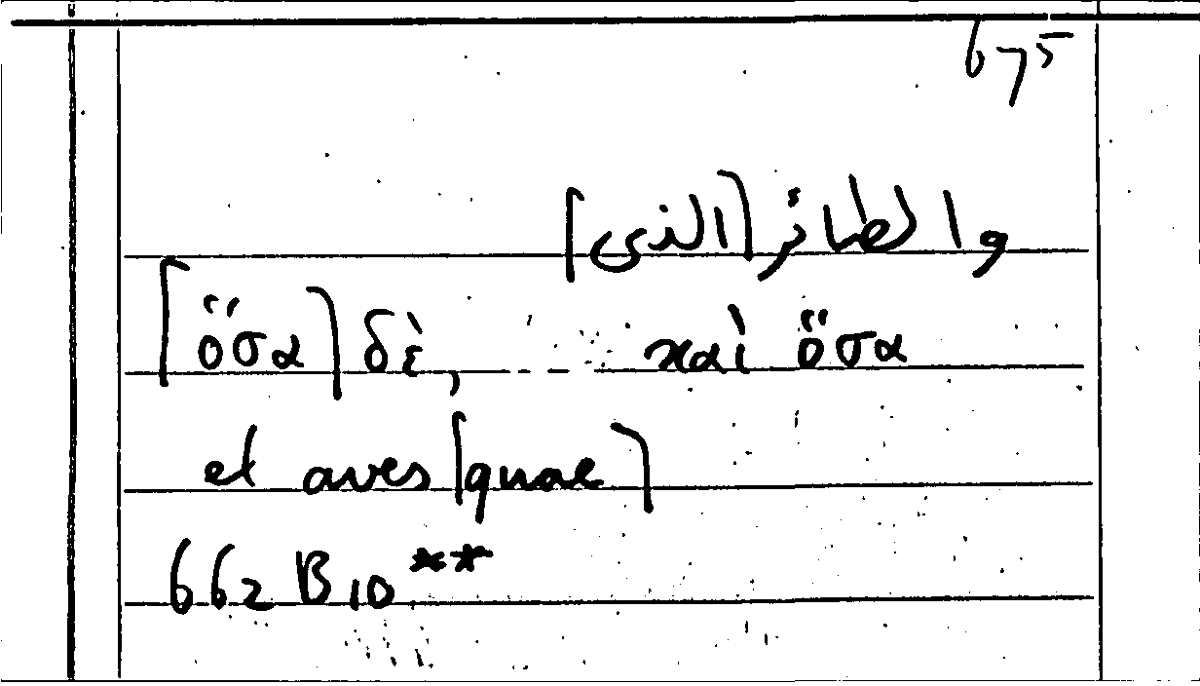 675
والطائر [الذى]
[ὅσα] δὲ, --- καὶ ὅσα
et aves [quae]
662 B 10 **